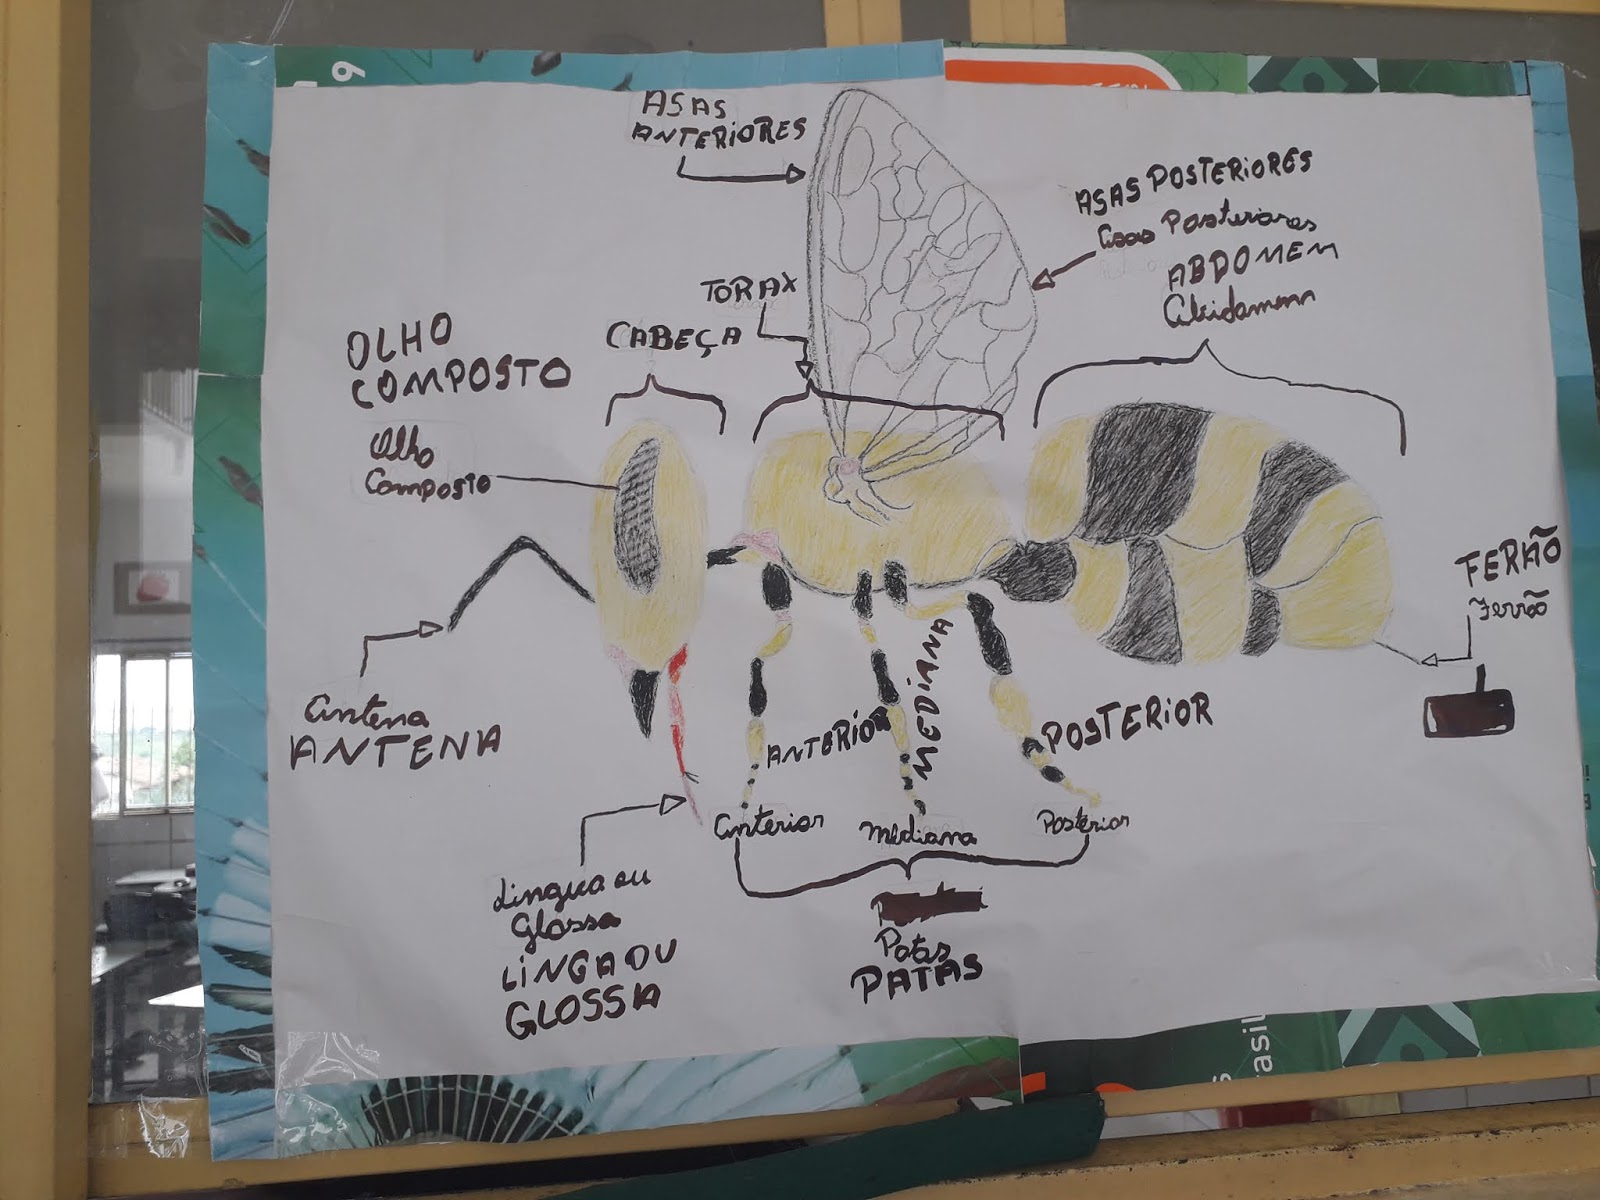 ASAS
ANTERiORES
ASAS POSTERiORES
Asas Posteriores
ABDOMEM
TORAX
CABEÇA
OLHO
COMPOSTO
Olho
Composto
FERÃO
Ferrão
Antena
ANTENA
ANTERiOR
MEDiANA
POSTERiOR
Anterior
Mediana
Postérior
Lingua ou
Glossa
LiNGA OU
GLOSSIA
Patas
PATAS
9
asil